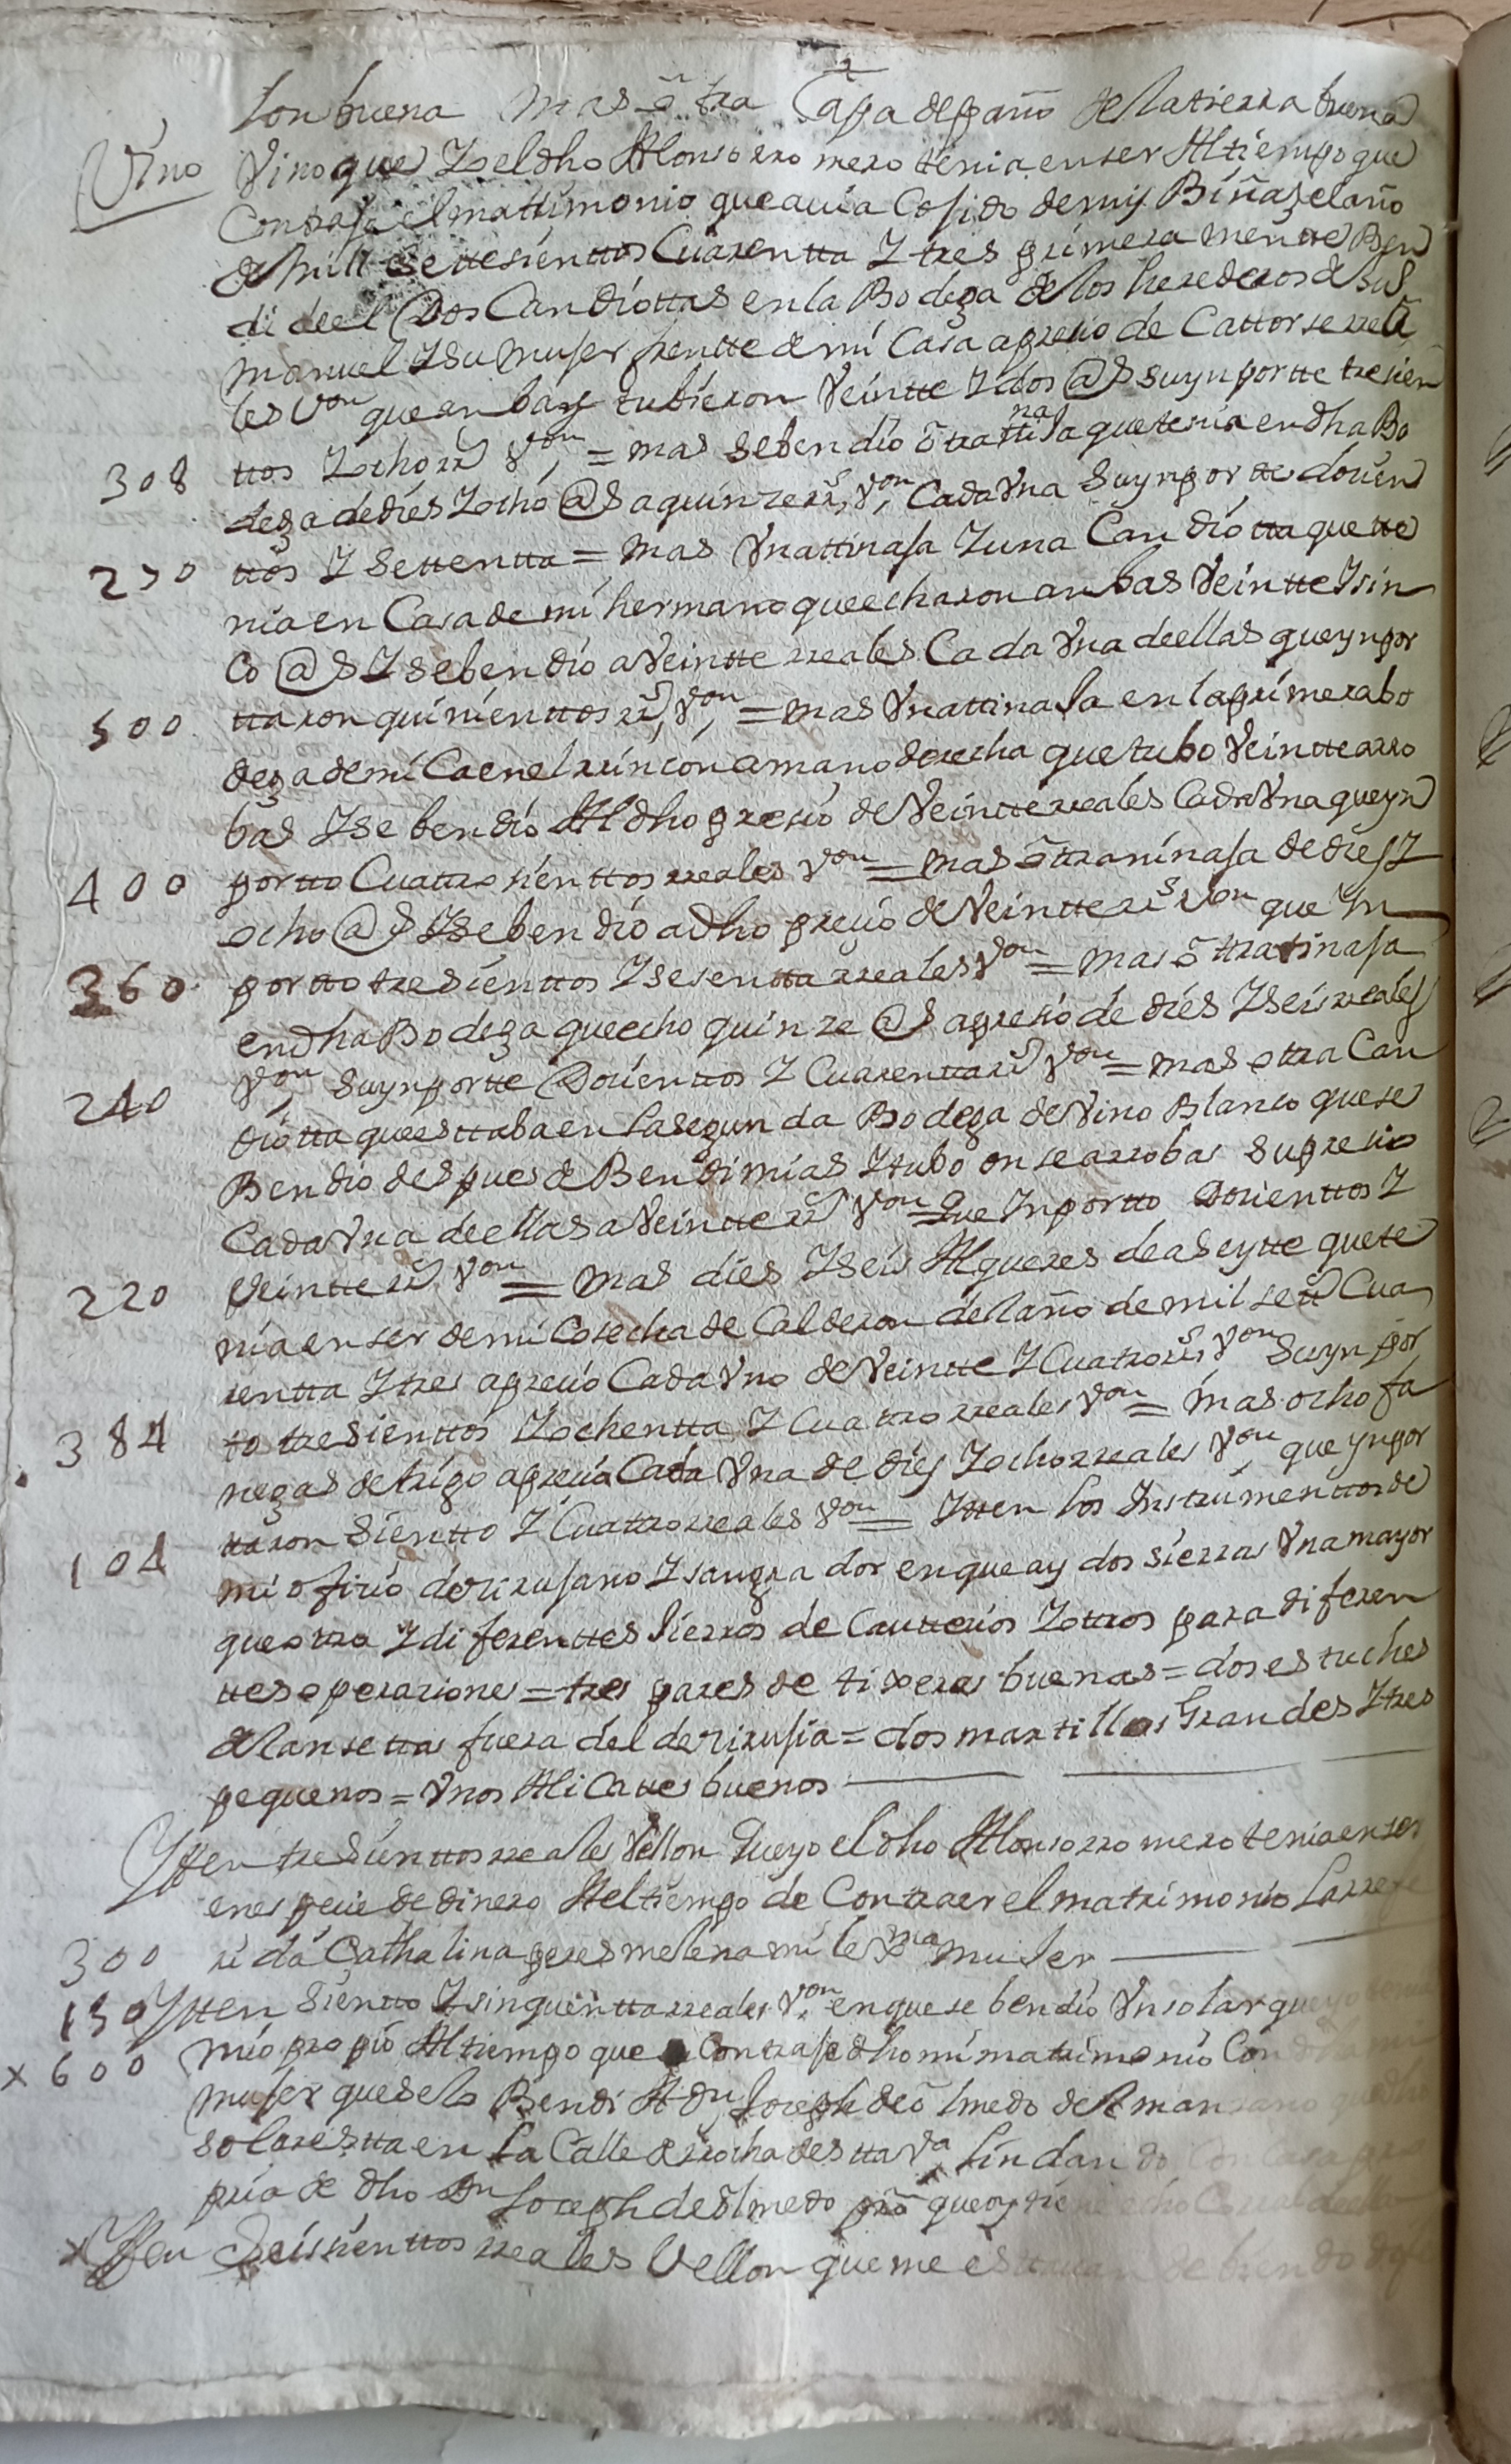 ton buena mas otra Capa de paño de la tierra buena
Vino Vino que Yo el dho Alonso rro mero tenia en ser Al tiempo que
Contraje el mattimonio que auia Cojido de mis Biñas el año
de mill settesienttos Cuarentta Y tres primera mente Ben
di de el Dos Candiottas en la Bodega de los herederos de
Manuel Y su Mujer frentte de mi Casa a presio de Cattorse rrea
les Von que anbas tubieron Veintte Y dos @s su ynportte tresien
308 ttos Y ocho rrs Von = mas se bendio otra ttinaja que tenia en dha Bo
dega de dies Y ocho @s a quinze rrs Von Cada Vna su ynpor te dosien
270 ttos Y Settentta = mas Vna ttinaja Y una Candiotta que tte
nia en Casa de mi hermano que echaron anbas Veintte Y sin
Co @s Y se bendio a Veintte rreales Cada Vna de ellas que ynpor
500 ttaron quinienttos rrs Von = mas Vna ttinaja en la primera bo
dega de mi Ca en el rrincon a mano derecha que tubo Veintte arro
bas Y se bendio Al dho presio de Veintte rreales Cada Vna que yn
400 portto Cuattro sienttos rreales Von = mas ottra ninaja de dies Y
ocho @s Y se bendio a dho presio de Veintte rrs Von que Yn
360 portto tresienttos Y sesentta rreales Von = mas ottra tinaja
en dha Bodega que echo quinze @s a presio de dies Y seis rreales
240 Von su ynportte Dosienttos Y Cuarentta rrs Von = mas otra Can
diotta que esttaba en la segunda Bodega de Vino Blanco que se
Bendio despues de Bendimias Y tubo onse arrobas su presio
Cada Vna de ellas a Veintte rrs Von = Que Ynportto Dosienttos Y
220 Veintte rrs Von = mas dies Y seis Alqueres de aseytte que te
nia en ser de mi Cosecha de Calderon del año de mil sett Cua
rentta Y tres a presio Cada Vno de Veintte Y Cuatro rrs Von su ynpor
384 to tresienttos Y ochentta Y Cuattro rreales Von = mas ocho fa
negas de trigo a presio Cada Vna de dies Y ocho rreales Von que ynpor
104 ttaron Sientto Y Cuattro rreales Von = Ytten los Ynstrumenttos de
mi ofisio de sirujano Y sangrador en que ay dos sierras Vna mayor
que otra Y diferenttes hierros de Cautterios Y ottros para diferen
ttes operasiones = tres pares de tixeras buenas = dos estuches
de lansettas fuera del de sirujia = dos martillos Grandes Y tres
pequenos = Vnos Alicattes buenos
Ytten tresienttos rreales Vellon Que yo el dho Alonso rro mero tenia en ser
en espesie de dinero Al tiempo de Contraer el matrimonio La rrefe
300 ri da Cathalina peres melena mi lexma Mujer
150 Ytten Sientto Y sinquentta rreales Von en que se bendio Vn solar que yo
x 600 mio propio Al tiempo que Contraje dho mi matrimonio Con
mujer que se lo Bendi A Dn Joseph de olmedo de Almansano que dho
solar estta en La Calle de rrocha de stta Va lindando Con Casa pro
pria de dho Dn Joseph de olmedo que oy
x Ytten Seissienttos rreales Vellon que me